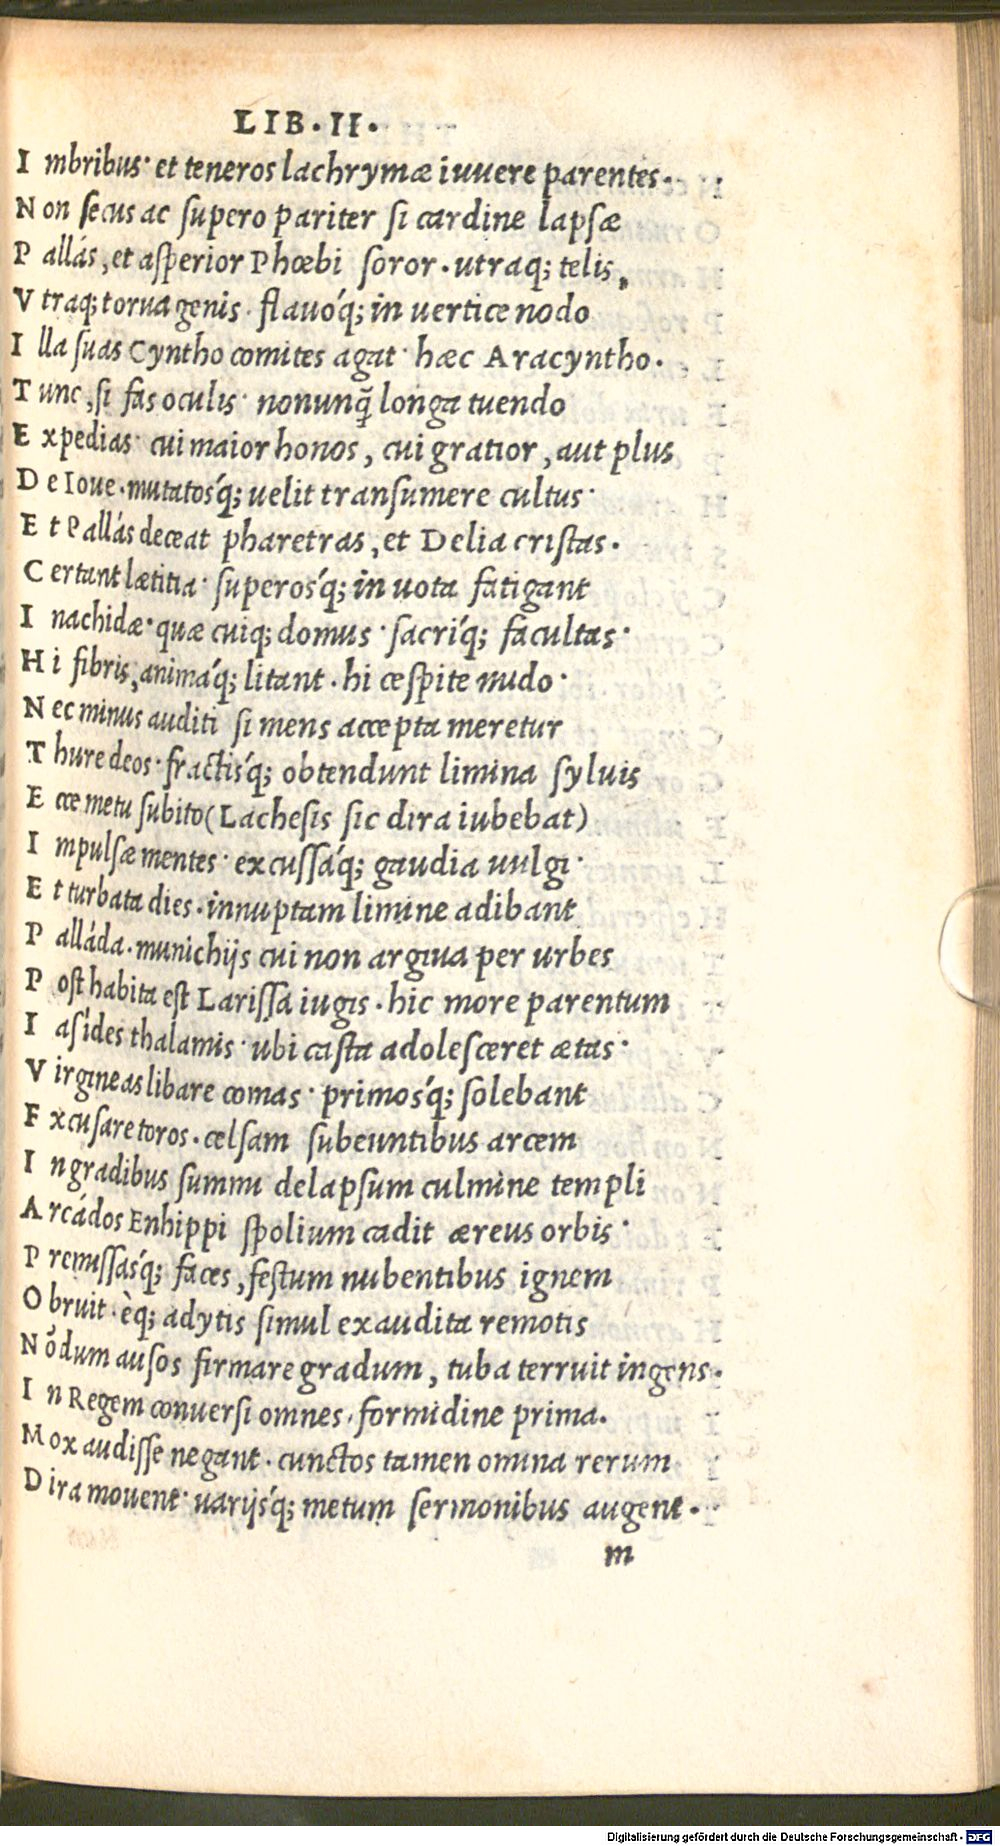 LIB·II·
I mbribus· et teneros lachrymæ iuuere parentes·
N on secus ac supero pariter si cardine lapsæ
P allás, et asperior Phœbi soror· utraq; telis,
V traq; torua genis· flauóq́; in uertice nodo
I lla suas Cyntho comites agat· hæc Aracyntho·
T unc, si fas oculis· nonunq̃ longa tuendo
E xpedias· cui maior honos, cui gratior, aut plus
D e Ioue· mutatosq́; uelit transumere cultus·
E t Pallás deceat pharetras, et Delia cristas·
C ertant lætitia· superosq́; in uota fatigant
I nachidæ· quæ cuiq; domus· sacriq́; facultas·
H i fibris, animáq́; litant· hi cespite nudo·
N ec minus auditi si mens accepta meretur
T hure deos· fractisq́; obtendunt limina syluis
E cce metu subito (Lachesis sic dira iubebat)
I mpulsæ mentes· excussáq́; gaudia uulgi·
E t turbata dies· innuptam limine adibant
P alláda· munichijs cui non argiua per urbes
P ost habita est Larissa iugis· hic more parentum
I asídes thalamis· ubi casta adolesceret ætas·
V irgineas libare comas· primosq́; solebant
E xcusare toros· celsam subeuntibus arcem
I n gradibus summi delapsum culmine templi
A rcádos Enhippi spolium cadit æreus orbis·
P remissasq́; faces, festum nubentibus ignem
O bruit· èq; adytis simul exaudita remotis
N õdum ausos firmare gradum, tuba terruit ingens·
I n Regem conuersi omnes· formidine prima·
M ox audisse negant· cunctos tamen omina rerum
D ira mouent· uarijsq́; metum sermonibus augent·
m
Digitalisierung gefördert durch die Deutsche Forschungsgemeinschaft - DFG